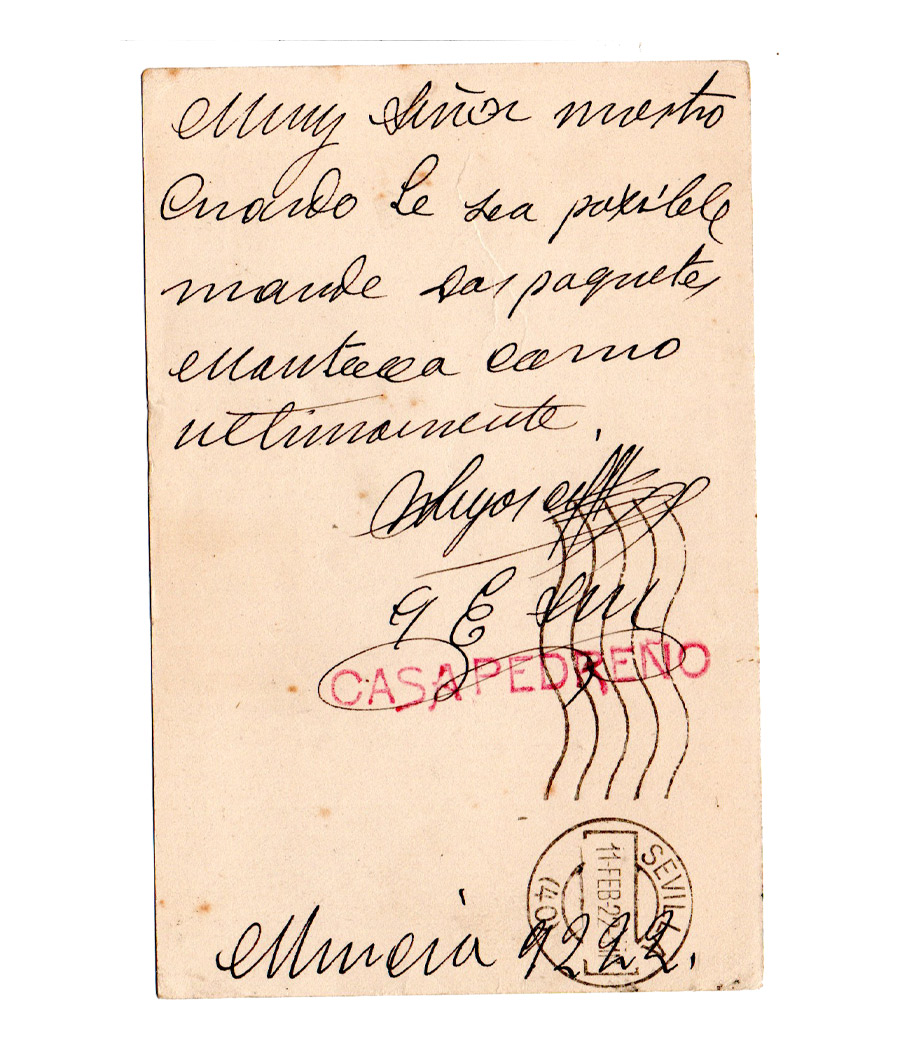 Muy Señor nuestro
Cuando Le sea poxsible
mande dos paquetes
Manteca como
ultimamente.
Suyos afff
q E S M
CASA PEDREÑO
SEVILLA
11-FEB-22
(40)
Murcia 9 2 22.